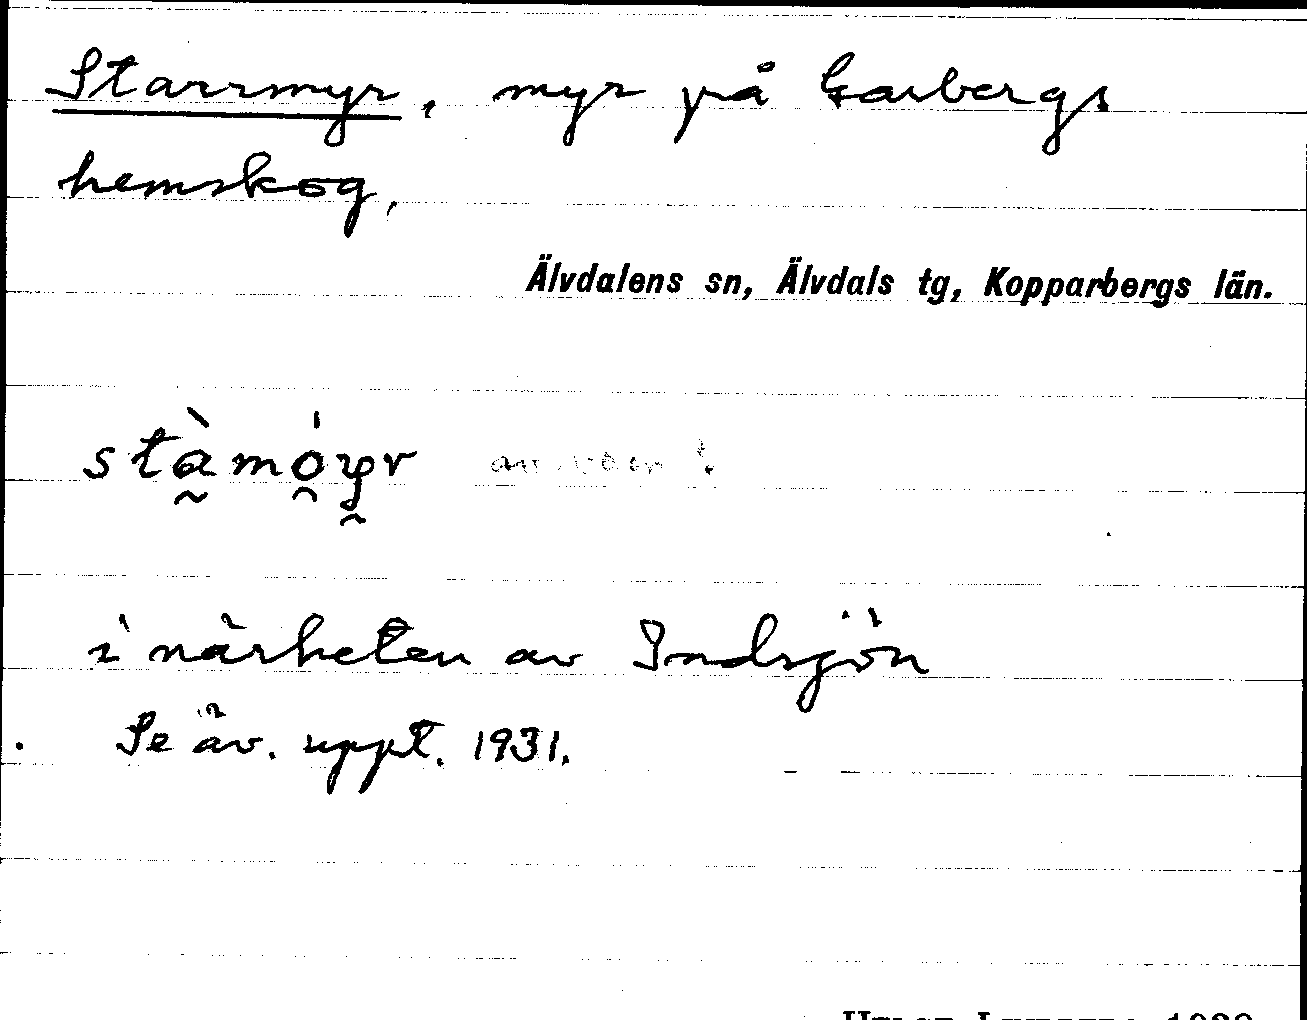 Starrmyr, myr på Garbergs
hemskog,
Älvdalens sn, Älvdals tg, Kopparbergs län.
stà̰mó̯y̯r
i närheten av Indsjön
Se äv. uppt. 1931.